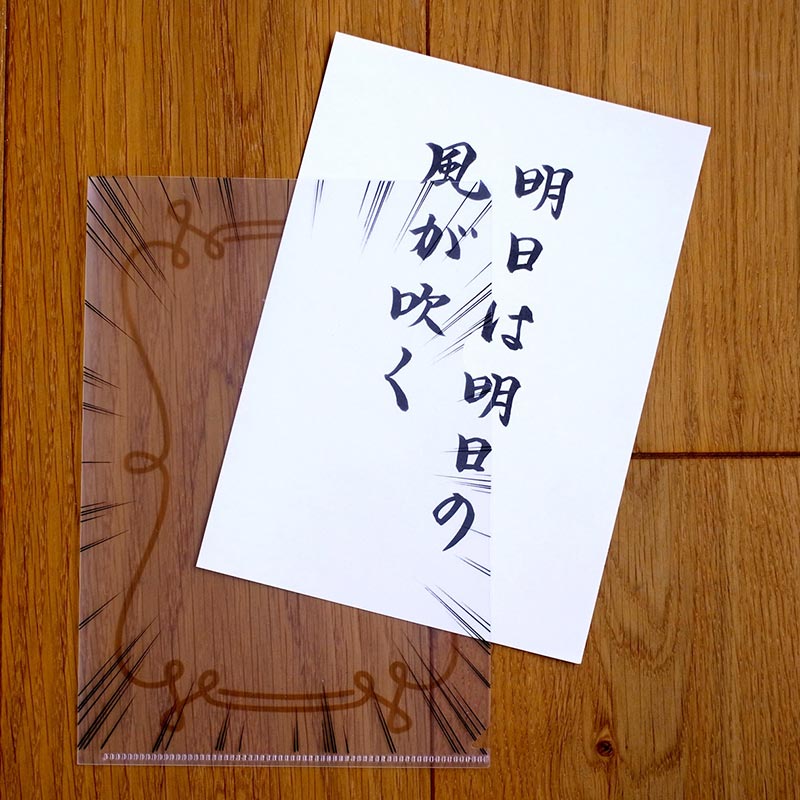 明日は明日の
風が吹く